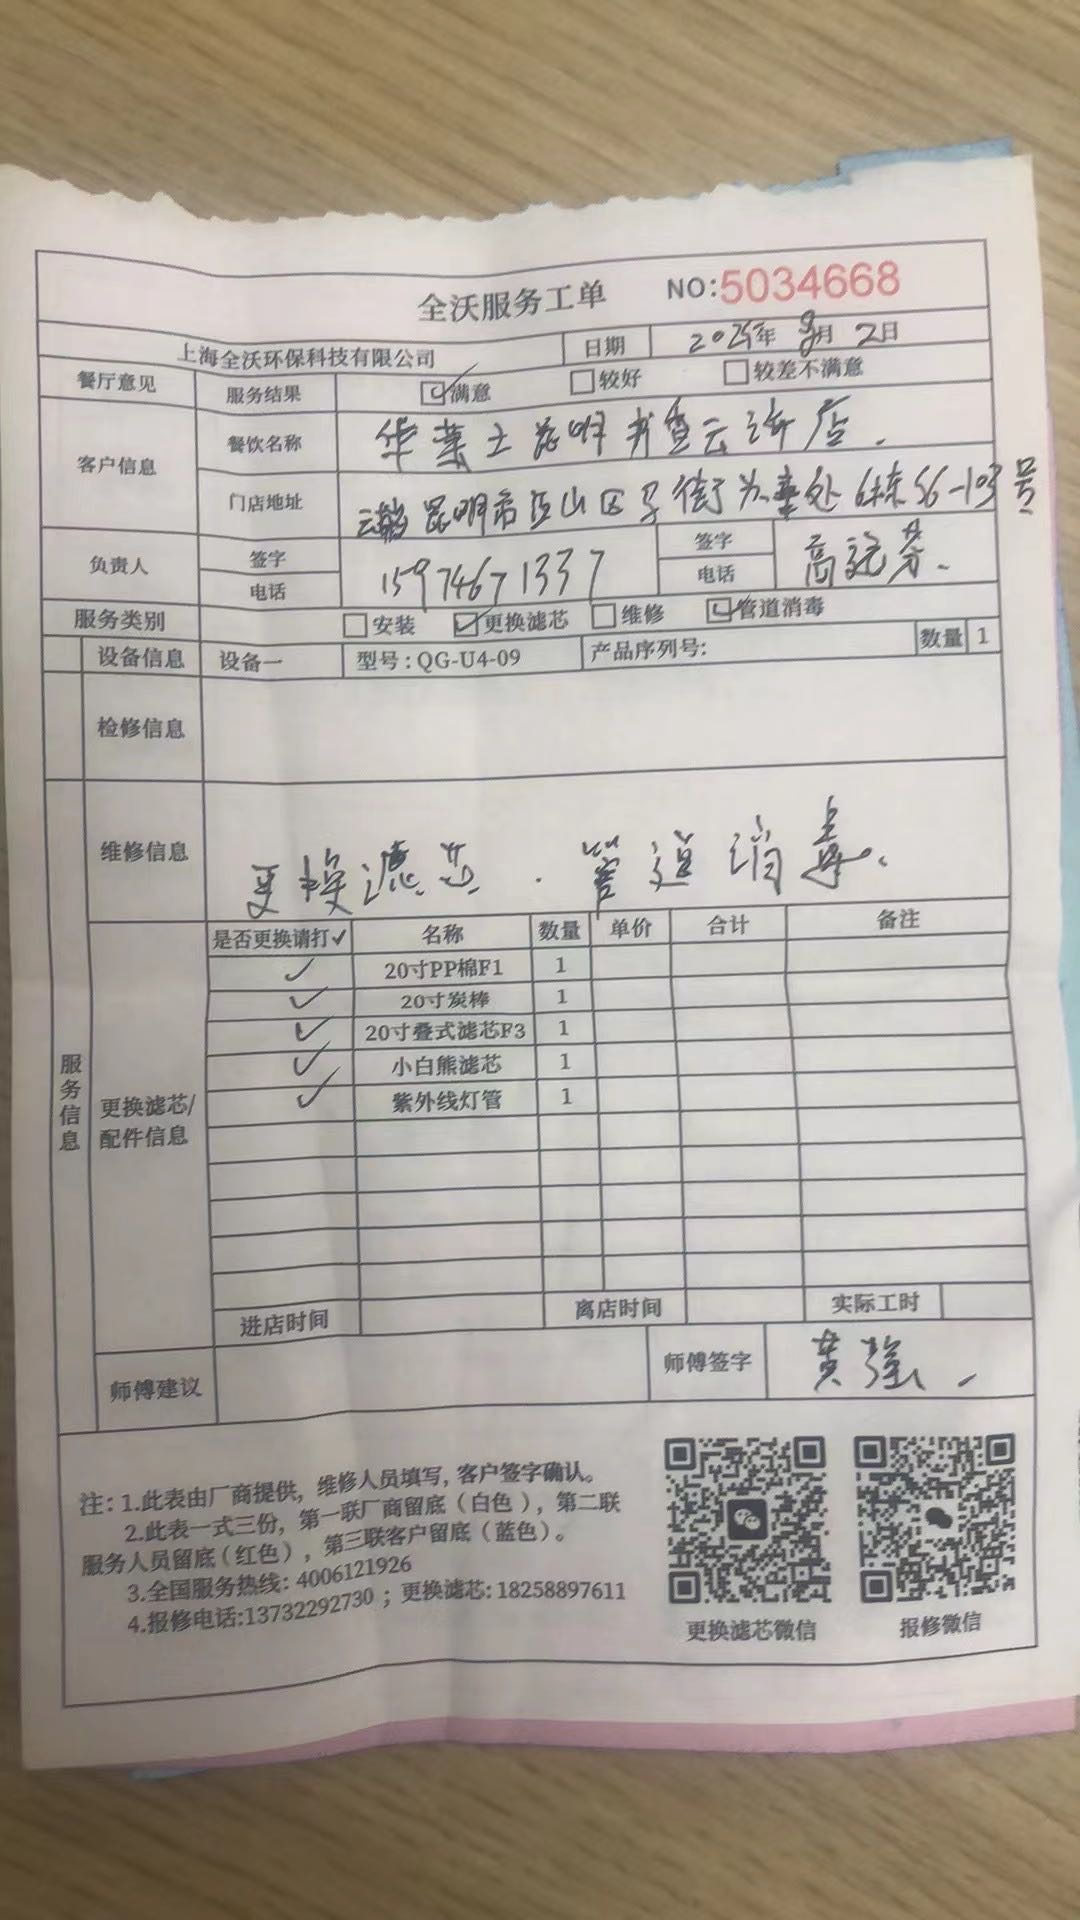 全沃服务工单 NO:5034668
上海全沃环保科技有限公司 日期 2025年8月2日
餐厅意见 服务结果 ☑满意 □较好 □较差不满意
客户信息 餐饮名称 华莱士昆明书香云海店.
门店地址 昆明市 山区 街 处6栋S6-103号
负责人 签字 电话 15974671337 签字 电话 高远芬.
服务类别 □安装 ☑更换滤芯 □维修 ☑管道消毒
设备信息 设备一 型号:QG-U4-09 产品序列号: 数量 1
检修信息
维修信息 更换滤芯.管道消毒.
服务信息
更换滤芯/配件信息
是否更换请打✓ 名称 数量 单价 合计 备注
✓ 20寸PP棉F1 1
✓ 20寸炭棒 1
✓ 20寸叠式滤芯F3 1
✓ 小白熊滤芯 1
✓ 紫外线灯管 1
进店时间 离店时间 实际工时
师傅建议 师傅签字 黄强.
注:1.此表由厂商提供,维修人员填写,客户签字确认。
2.此表一式三份,第一联厂商留底(白色),第二联
服务人员留底(红色),第三联客户留底(蓝色)。
3.全国服务热线:4006121926
4.报修电话:13732292730;更换滤芯:18258897611
更换滤芯微信 报修微信